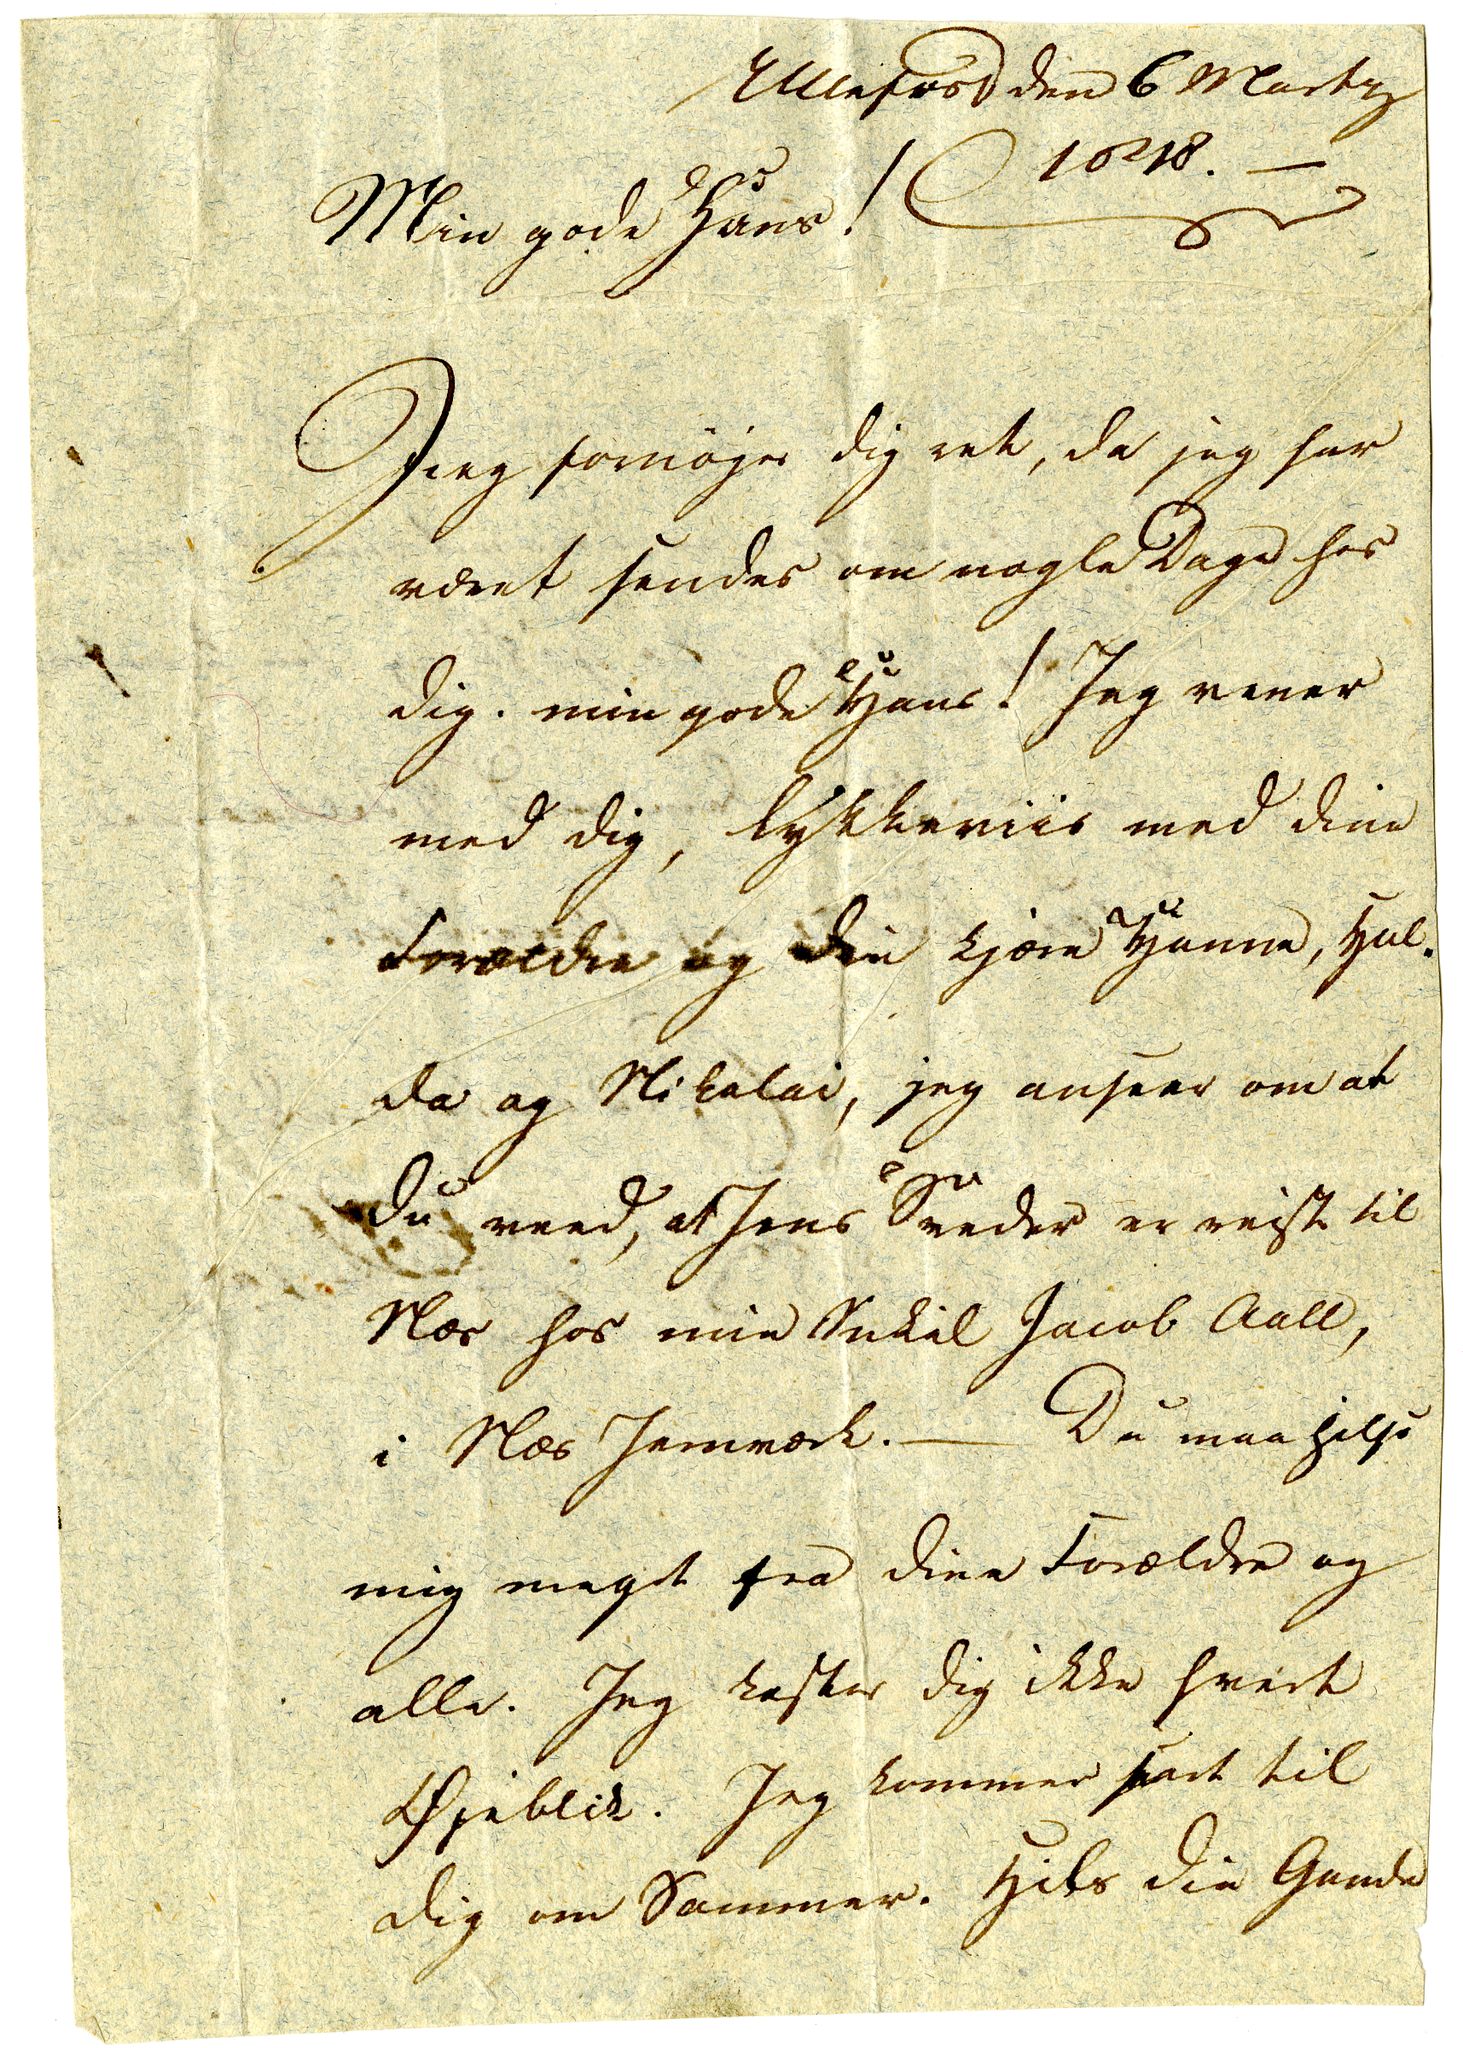 Ullefos den 6 Martz
1818. —
Min gode Hans!
Jeg fornøjer dig ret, da jeg har
været sendes om nogle Dage hos
dig. min gode Hans! Jeg
med dig, lykkeviis med dine
Forældre og din kjære Hanna, Hal-
da og Nikolai, jeg anseer om at
Du veed, at Jens er reist til
Næs hos min Onkel Jacob Aall,
i Næs Jernværk. — Du maa hilse
mig meget fra dine Forældre og
alle. Jeg kaster dig ikke hvert
Øjeblik. Jeg kommer snart til
dig om Sommer. Hils din